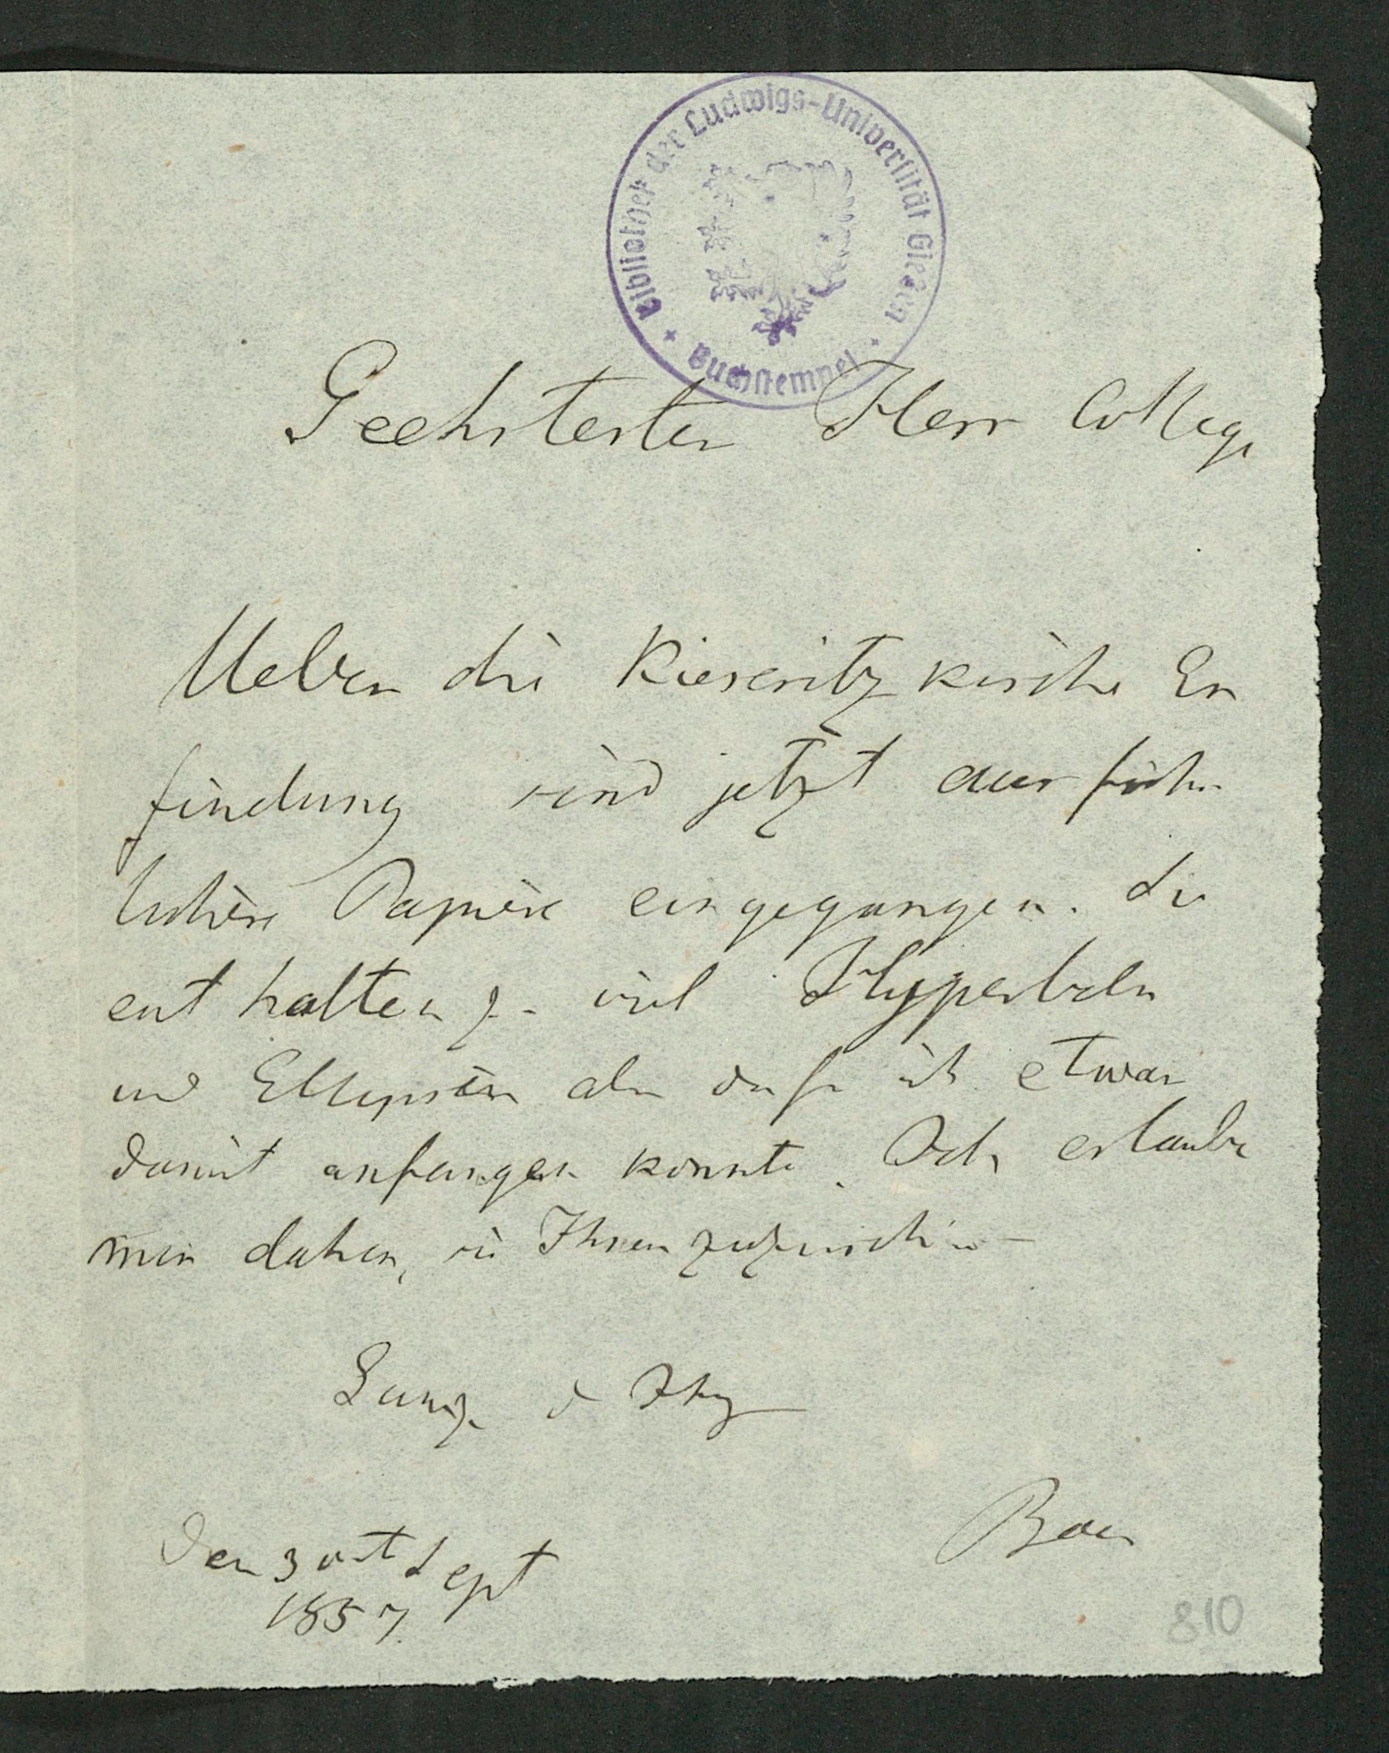 Bibliothek der Ludwigs-Universität Gießen
Buchstempel
Geehrtester Herr College
Ueber die Kieseritzkische Er
findung sind jetzt ausführ
lichere Papiere eingegangen. Sie
enthalten zu viel Hyperbeln
und Ellipsen als daß ich etwas
damit anfangen konnte. Ich erlaube
mir daher, sie Ihnen zuzuschicken
Ganz d Ihrige
Baer
den 30st Sept
1857.
810